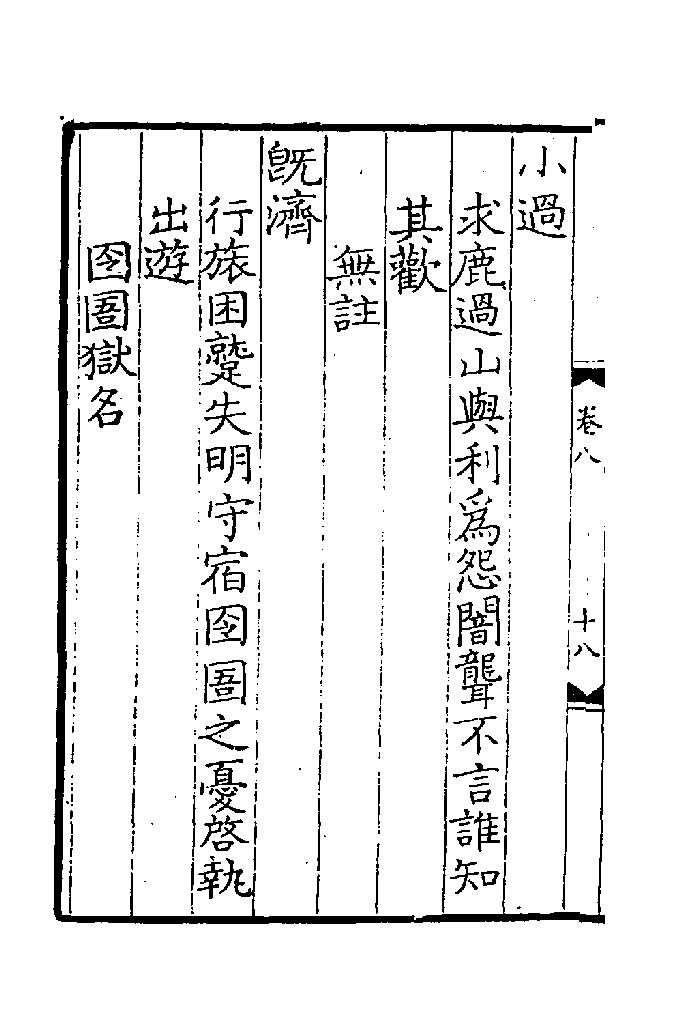 小過
求鹿過山與利爲怨闇聾不言誰知
其歡
無註
旣濟
行旅困蹷失明守宿囹圄之憂啓執
出遊
囹圄獄名
卷八
十八